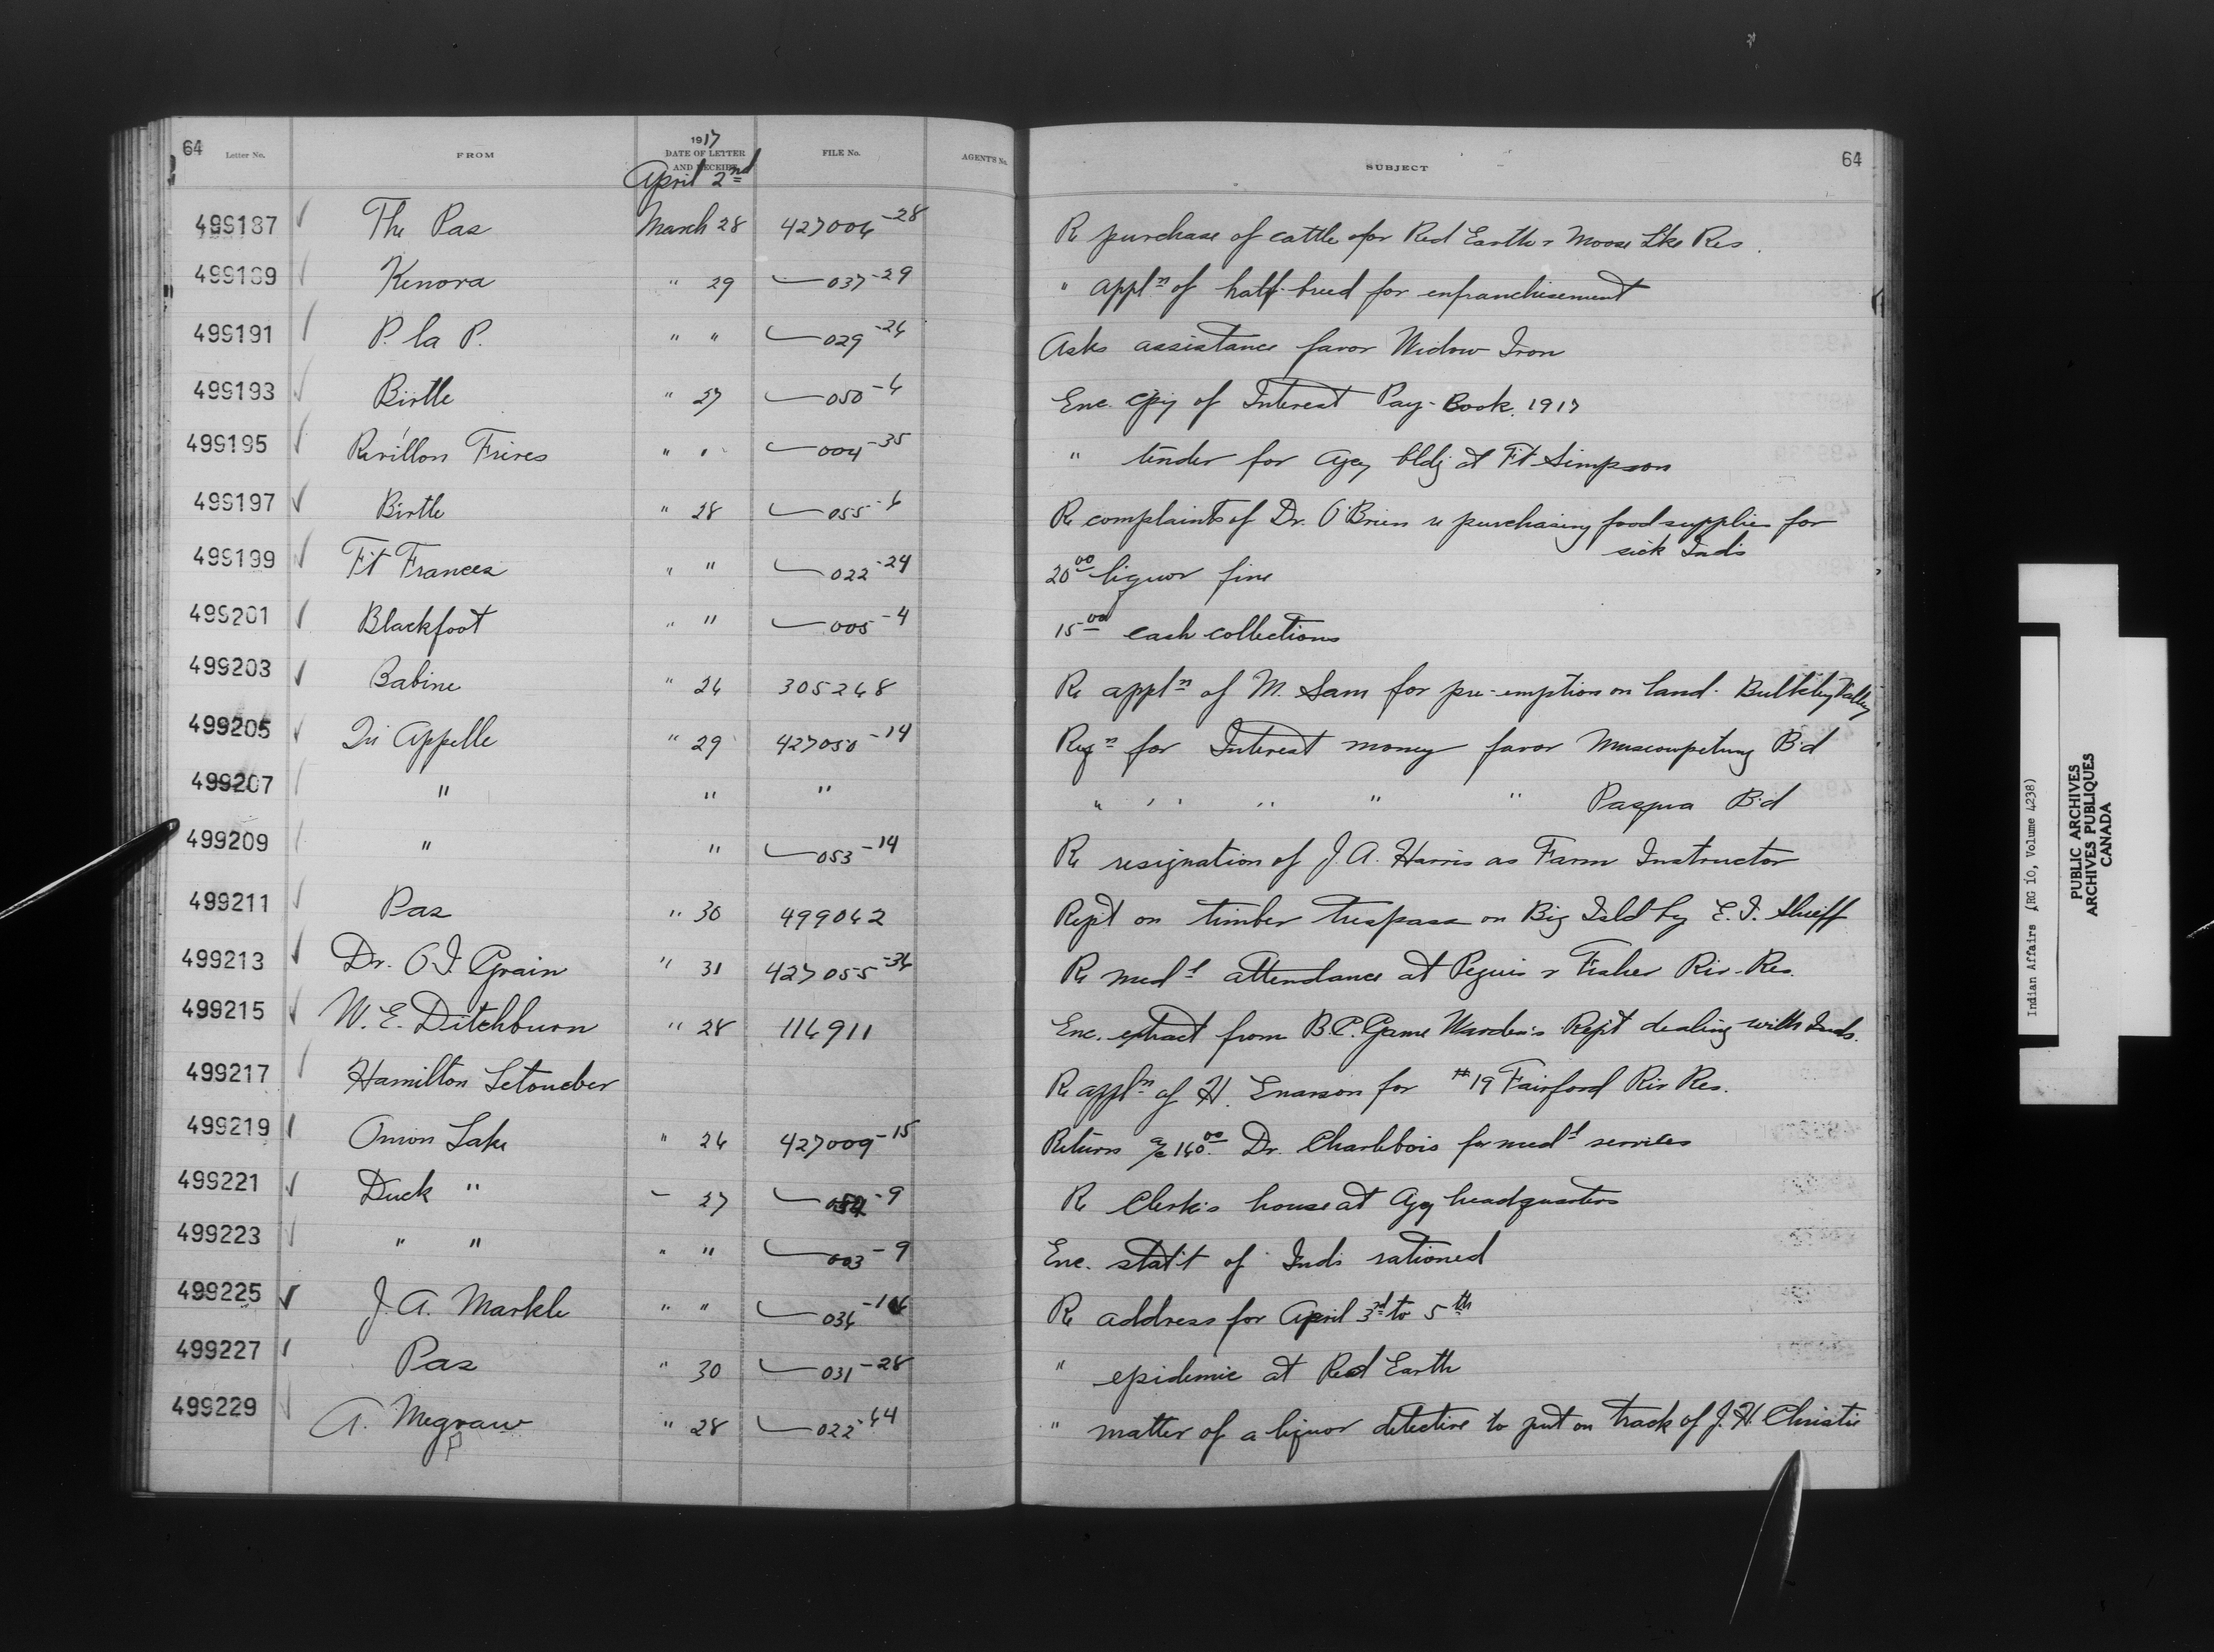 64 Letter No. FROM 1917 DATE OF LETTER AND RECEIPT FILE No. AGENT'S No. SUBJECT 64
April 2nd
499187 The Pas March 28 427006-28 Re purchase of cattle for Red Earth & Moose Lke Res.
499189 Kenora " 29 037-29 " appln of half-breed for enfranchisement
499191 P. la P. " " 029-26 Asks assistance favor Widow Iron
499193 Birtle " 27 050-6 Enc. cpy of Interest Pay-Book. 1917
499195 Revillon Freres " " 004-35 " tender for Agcy bldg at Ft Simpson
499197 Birtle " 28 055-6 Re complaints of Dr. O'Brien re purchasing food supplies for
sick Inds
499199 Ft Frances " " 022-24 20.00 liquor fine
499201 Blackfoot " " 005-4 15.00 cash collections
499203 Babine " 26 305268 Re appln of M. Sam for pre-emption on land. Bulkley Valley
499205 Qu Appelle " 29 427050-14 Reqn for Interest money favor Muscowpetung Bd
499207 " " " " " " " " Pasqua Bd
499209 " " 053-14 Re resignation of J. A. Harris as Farm Instructor
499211 Pas " 30 499042 Rept on timber trespass on Big Isld by E. J.
499213 Dr. O I. Grain " 31 427055-36 Re medl attendance at Peguis & Fisher Riv. Res.
499215 W. E. Ditchburn " 28 116911 Enc. extract from B.C. Game Warden's Rept dealing with Inds.
499217 Hamilton Re appln of H. Enarson for #19 Fairford Riv Res.
499219 Onion Lake " 26 427009-15 Return a/c 160.00 Dr. Charlebois for medl services
499221 Duck " " 27 -9 Re Clerk's house at Agcy headquarters
499223 " " " " 003-9 Enc. stat't of Inds rationed
499225 J. A. Markle " " 036- Re address for April 3rd to 5th
499227 Pas " 30 031-28 " epidemic at Red Earth
499229 A. Megraw " 28 022-44 " matter of a liquor detective to put on track of J. H. Christie
Indian Affairs (RG 10, Volume 4238)
PUBLIC ARCHIVES
ARCHIVES PUBLIQUES
CANADA